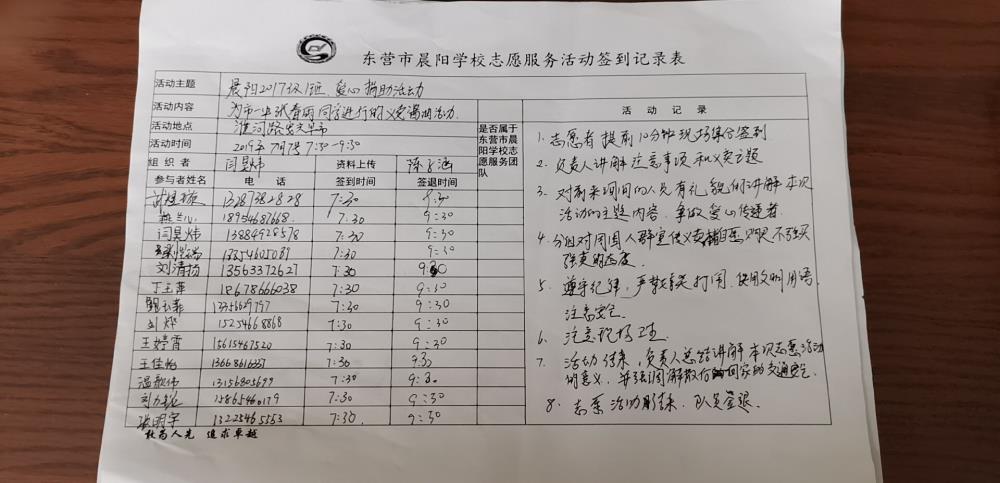 东营市晨阳学校志愿服务活动签到记录表
活动主题 晨阳2017级1班、爱心捐助活动
活动内容 为市一中张春雨同学进行的义卖捐助活动.
活动地点 淮河路 早市
活动时间 2019年7月7号 7:30-9:30
组织者 闫昊炜 资料上传
是否属于东营市晨阳学校志愿服务团队
活动记录
参与者姓名 电话 签到时间 签退时间
13287382828 7:30 9:30
18954687668. 7:30 9:30
闫昊炜 13884928578 7:30 9:30
13354605089 7:30 9:30
刘清扬 13563372627 7:30 9:30
丁玉萍 18678666038 7:30 9:30
7:30 9:30
刘烨 15254668868 7:30 9:30
王婷霄 15615467520 7:30 9:30
王佳怡 7:30 9:30
温歆伟 13156805699 7:30 9:30
15865460179 7:30 9:30
张明宇 13223465553 7:30 9:30
1. 志愿者提前10分钟现场集合签到
2. 负责人讲解注意事项和义卖主题
3. 对前来询问的人员有礼貌的讲解本次
活动的主题内容、争做爱心传递者.
4. 分组对周围人群宣传义卖 不强买
强卖的态度.
5. 遵守纪律,严禁 打闹、使用文明用语.
注意安全.
6. 注意现场卫生
7. 活动结束,负责人总结讲解本次志愿活动
的意义,并强调解散后回家的交通安全.
8. 志愿活动结束、队员签退.
敢为人先 追求卓越